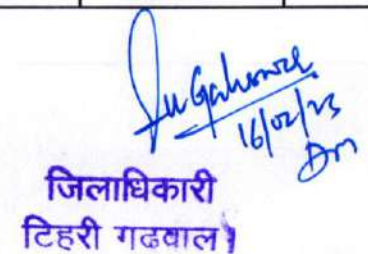 16/02/23
DM
जिलाधिकारी
टिहरी गढवाल